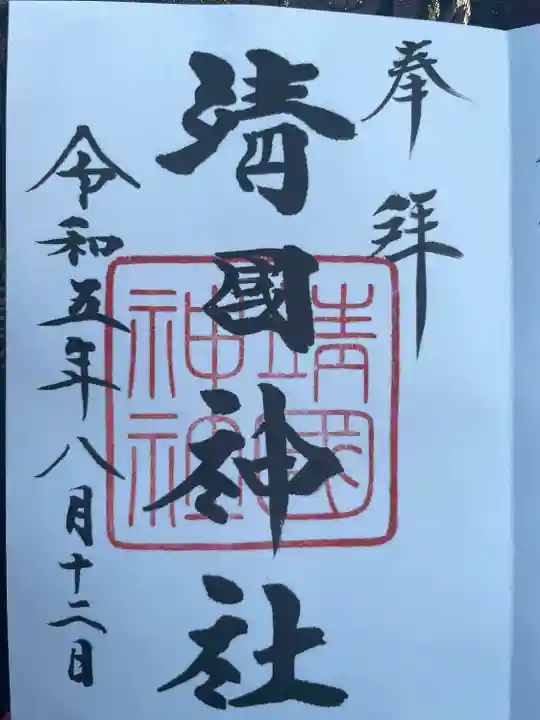 奉拝
靖國神社
靖國神社
令和五年八月十二日